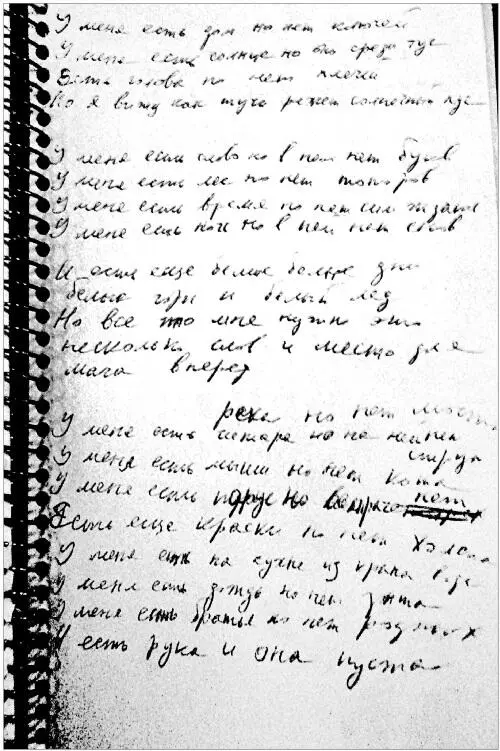 У меня есть дом но нет ключей
У меня есть солнце но оно среди туч
Есть голова но нет плечей
Но я вижу как тучи режет солнечный луч
У меня есть слово но в нем нет букв
У меня есть лес но нет топоров
У меня есть время но нет сил ждать
У меня есть ночь но в ней нет снов
И есть еще белые белые дни
белые горы и белый лед
Но все что мне нужно это
несколько слов и место для
шага вперед
река но нет моста
У меня есть гитара но на ней нет
струн
У меня есть мыши но нет кота
У меня есть парус но ветра нет
Есть еще краски но нет холста
У меня есть на кухне из крана вода
У меня есть рана но нет бинта
У меня есть братья но нет родных
И есть рука и она пуста